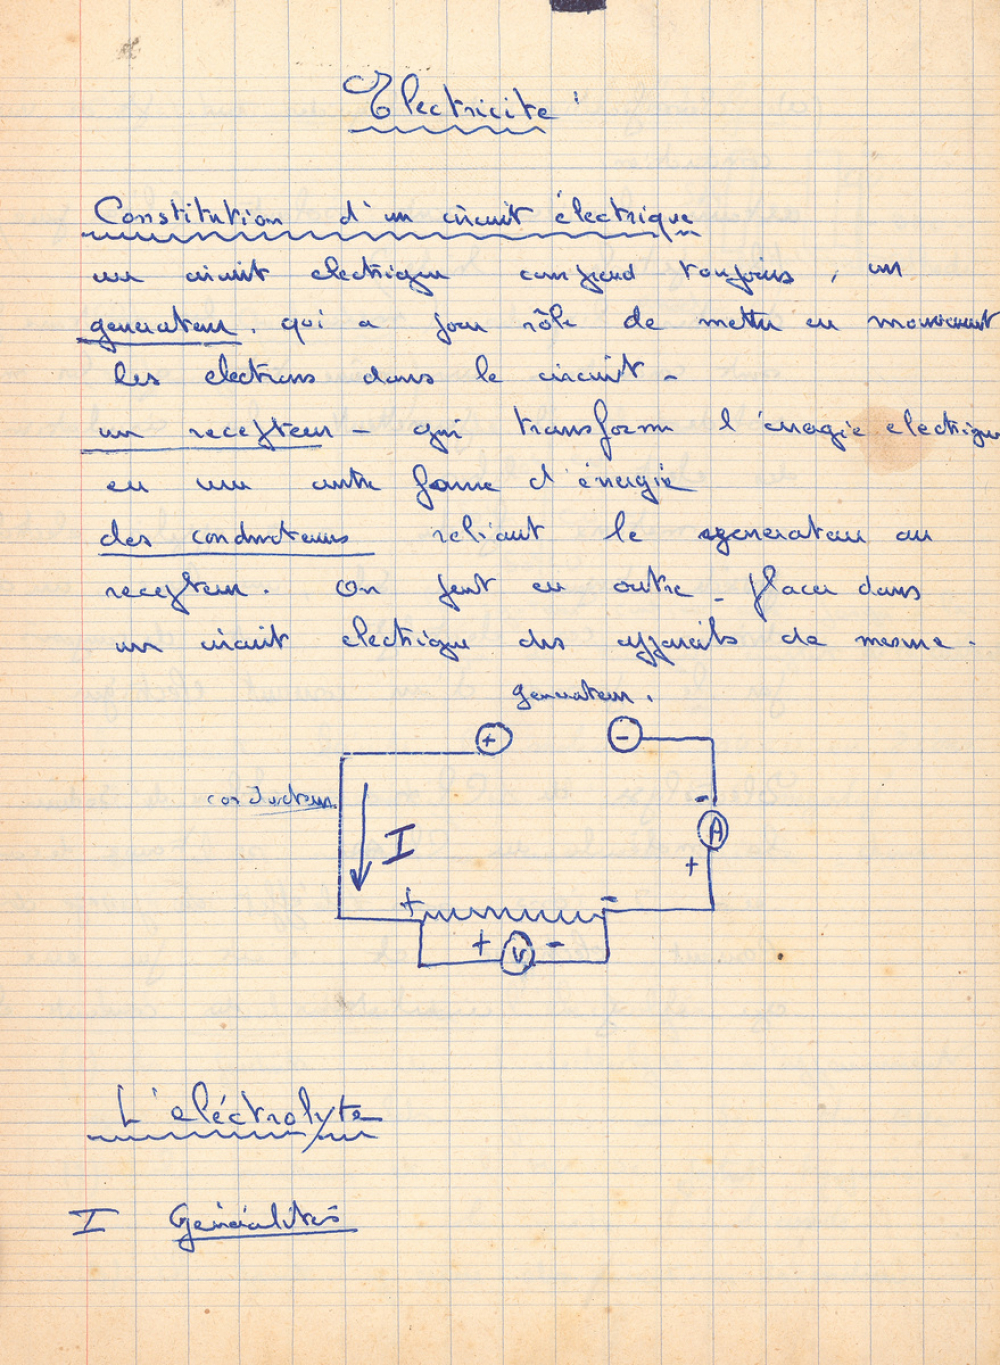 Electricité
Constitution d'un circuit électrique
un circuit electrique comprend toujours, un
generateur. qui a pour rôle de mettre en mouvement
les electrons dans le circuit -
un recepteur - qui transforme l'énergie electrique
en une autre forme d'énergie
des conducteurs reliant le generateur au
recepteur. On peut en outre - placer dans
un circuit electrique des appareils de mesure.
generateur.
+ -
conducteur
-
A
I
+
+ -
+ V -
L'eléctrolyte
I Généralités